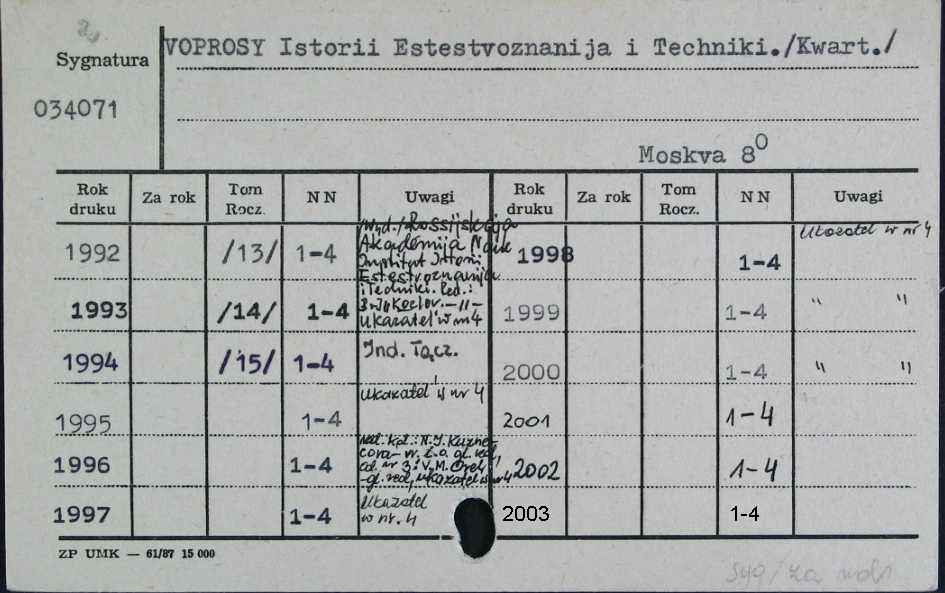 Sygnatura
VOPROSY Istorii Estestvoznanija i Techniki./Kwart./
034071
Moskva 8⁰
Rok druku Za rok Tom Rocz. NN Uwagi Rok druku Za rok Tom Rocz. NN Uwagi
1992 /13/ 1-4
/Wyd./Rossijskaja
Akademija Nauk
Institut Istorii
Estestvoznanija
i Techniki. Red.:
1998 1-4 Ukazatel' w nr 4
1993 /14/ 1-4
Ukazatel' w nr 4
1999 1-4 " "
1994 /15/ 1-4 Ind. Łącz.
2000 1-4 " "
1995 1-4 Ukazatel' w nr 4
2001 1-4
1996 1-4
od nr 3: V.M. Orel
-gl. red., ukazatel' w nr 4
2002 1-4
1997 1-4 Ukazatel
w nr. 4
2003 1-4
ZP UMK — 61/87 15 000